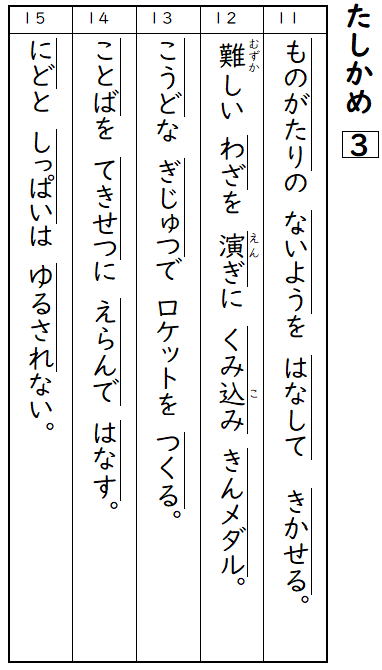 たしかめ 3
11
ものがたりの ないようを はなして きかせる。
12
難しい わざを 演ぎに くみ込み きんメダル。
むずか
えん
こ
13
こうどな ぎじゅつで ロケットを つくる。
14
ことばを てきせつに えらんで はなす。
15
にどと しっぱいは ゆるされない。